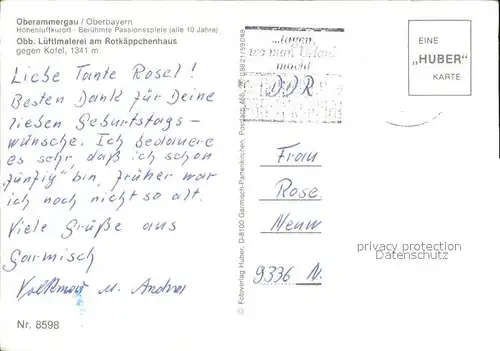 Oberammergau / Oberbayern
Höhenluftkurort - Berühmte Passionsspiele (alle 10 Jahre)
Obb. Lüftlmalerei am Rotkäppchenhaus
gegen Kofel, 1341 m
Liebe Tante Rosel!
Besten Dank für Deine
lieben Geburtstags-
wünsche. Ich bedauere
es sehr, daß ich schon
"fünfzig" bin, früher war
ich noch nicht so alt.
Viele Grüße aus
Garmisch
Volkmar u. Andrea
Nr. 8598
© Fotoverlag Huber, D-8100 Garmisch-Partenkirchen, Postfach 466, 08821/59048
...tagen,
wo man Urlaub
macht
EINE
„HUBER"
KARTE
Frau
Rose
9336 N.
privacy protection
VERANDI.COM